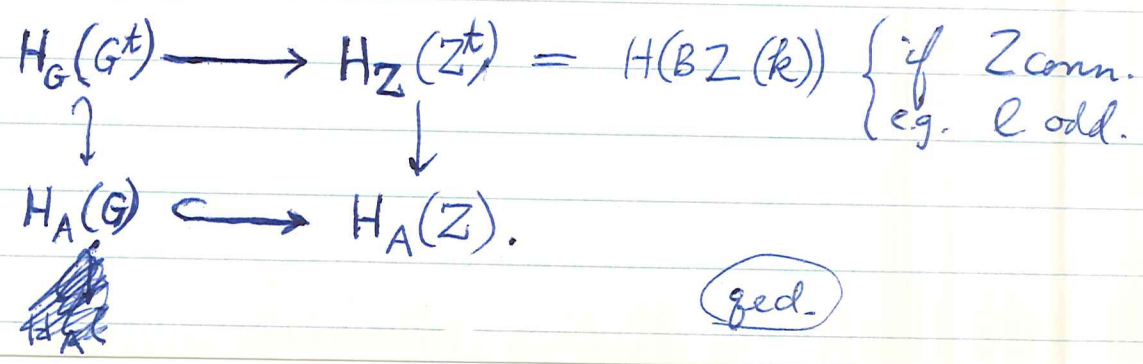 H_G(G^t) ⟶ H_Z(Z^t) = H(BZ(k)) { if Z conn.
e.g. l odd.
↪ ↓
H_A(G) ↪ H_A(Z).
qed.